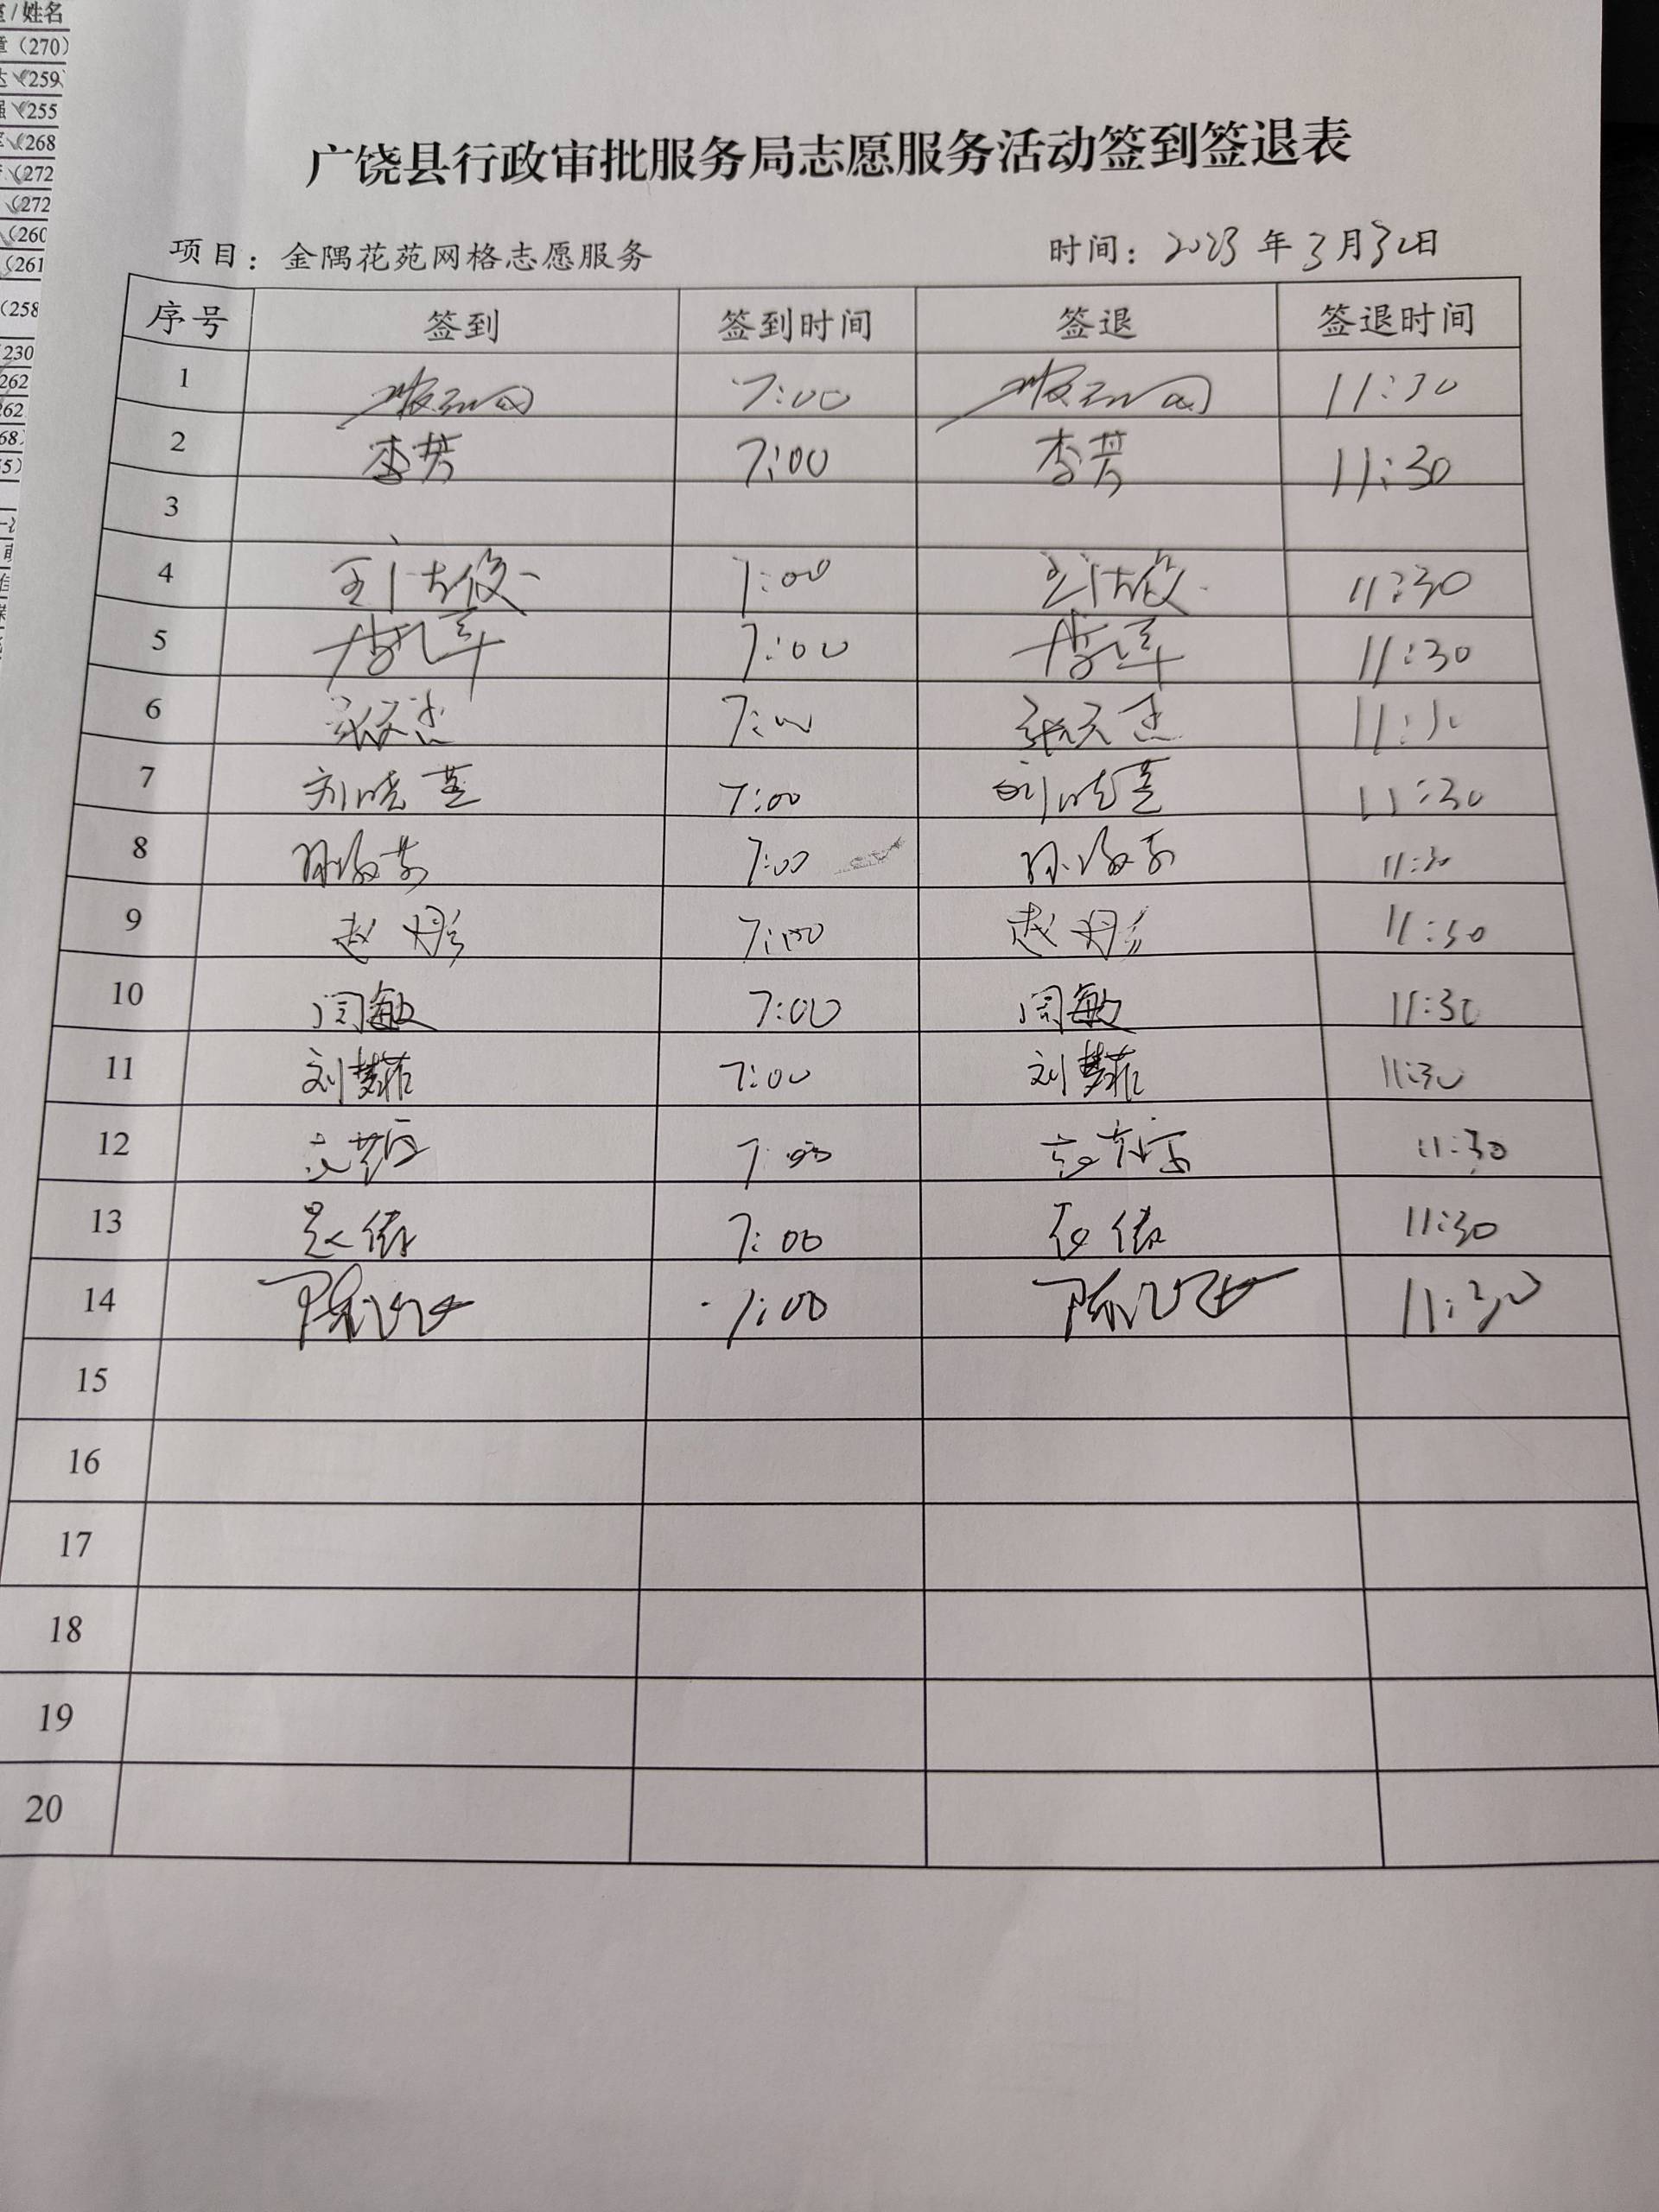 室/姓名
(270)
(259
(255
(268
(272
(272
(260
(261
(258
230
262
262
68)
5)
广饶县行政审批服务局志愿服务活动签到签退表
项目：金隅花苑网格志愿服务 时间：2023 年 3 月 30 日
序号 签到 签到时间 签退 签退时间
1 7:00 11:30
2 李芳 7:00 李芳 11:30
3
4 7:00 11:30
5 7:00 11:30
6 张天杰 7:00 张天杰 11:30
7 刘晓 7:00 刘晓 11:30
8 孙海芳 7:00 孙海芳 11:30
9 赵彤彤 7:00 赵彤彤 11:30
10 闫敏 7:00 闫敏 11:30
11 刘梦菲 7:00 刘梦菲 11:30
12 7:00 11:30
13 赵倩 7:00 赵倩 11:30
14 7:00 11:30
15
16
17
18
19
20